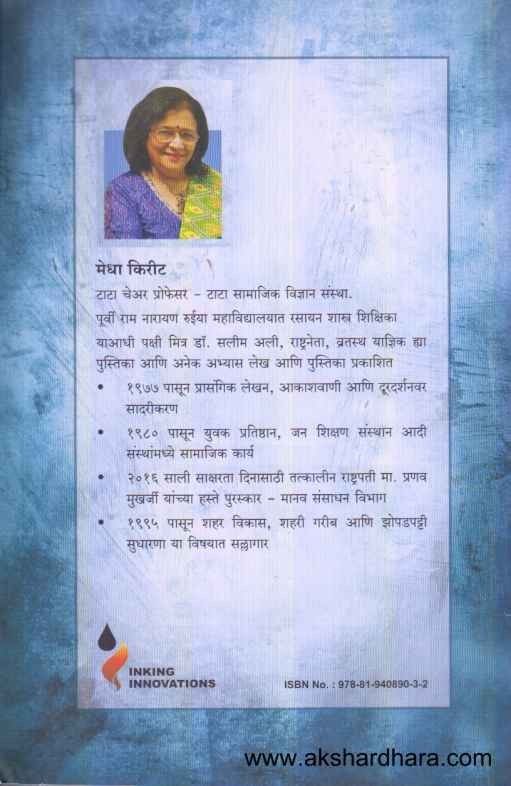 मेधा किरीट
टाटा चेअर प्रोफेसर - टाटा सामाजिक विज्ञान संस्था.
पूर्वी राम नारायण रुईया महाविद्यालयात रसायन शास्त्र शिक्षिका
याआधी पक्षी मित्र डॉ. सलीम अली, राष्ट्रनेता, व्रतस्थ याज्ञिक ह्या
पुस्तिका आणि अनेक अभ्यास लेख आणि पुस्तिका प्रकाशित
• १९७७ पासून प्रासंगिक लेखन, आकाशवाणी आणि दूरदर्शनवर
सादरीकरण
• १९८० पासून युवक प्रतिष्ठान, जन शिक्षण संस्थान आदी
संस्थांमध्ये सामाजिक कार्य
• २०१६ साली साक्षरता दिनासाठी तत्कालीन राष्ट्रपती मा. प्रणव
मुखर्जी यांच्या हस्ते पुरस्कार - मानव संसाधन विभाग
• १९९५ पासून शहर विकास, शहरी गरीब आणि झोपडपट्टी
सुधारणा या विषयात सल्लागार
INKING
INNOVATIONS
ISBN No. : 978-81-940890-3-2
www.akshardhara.com